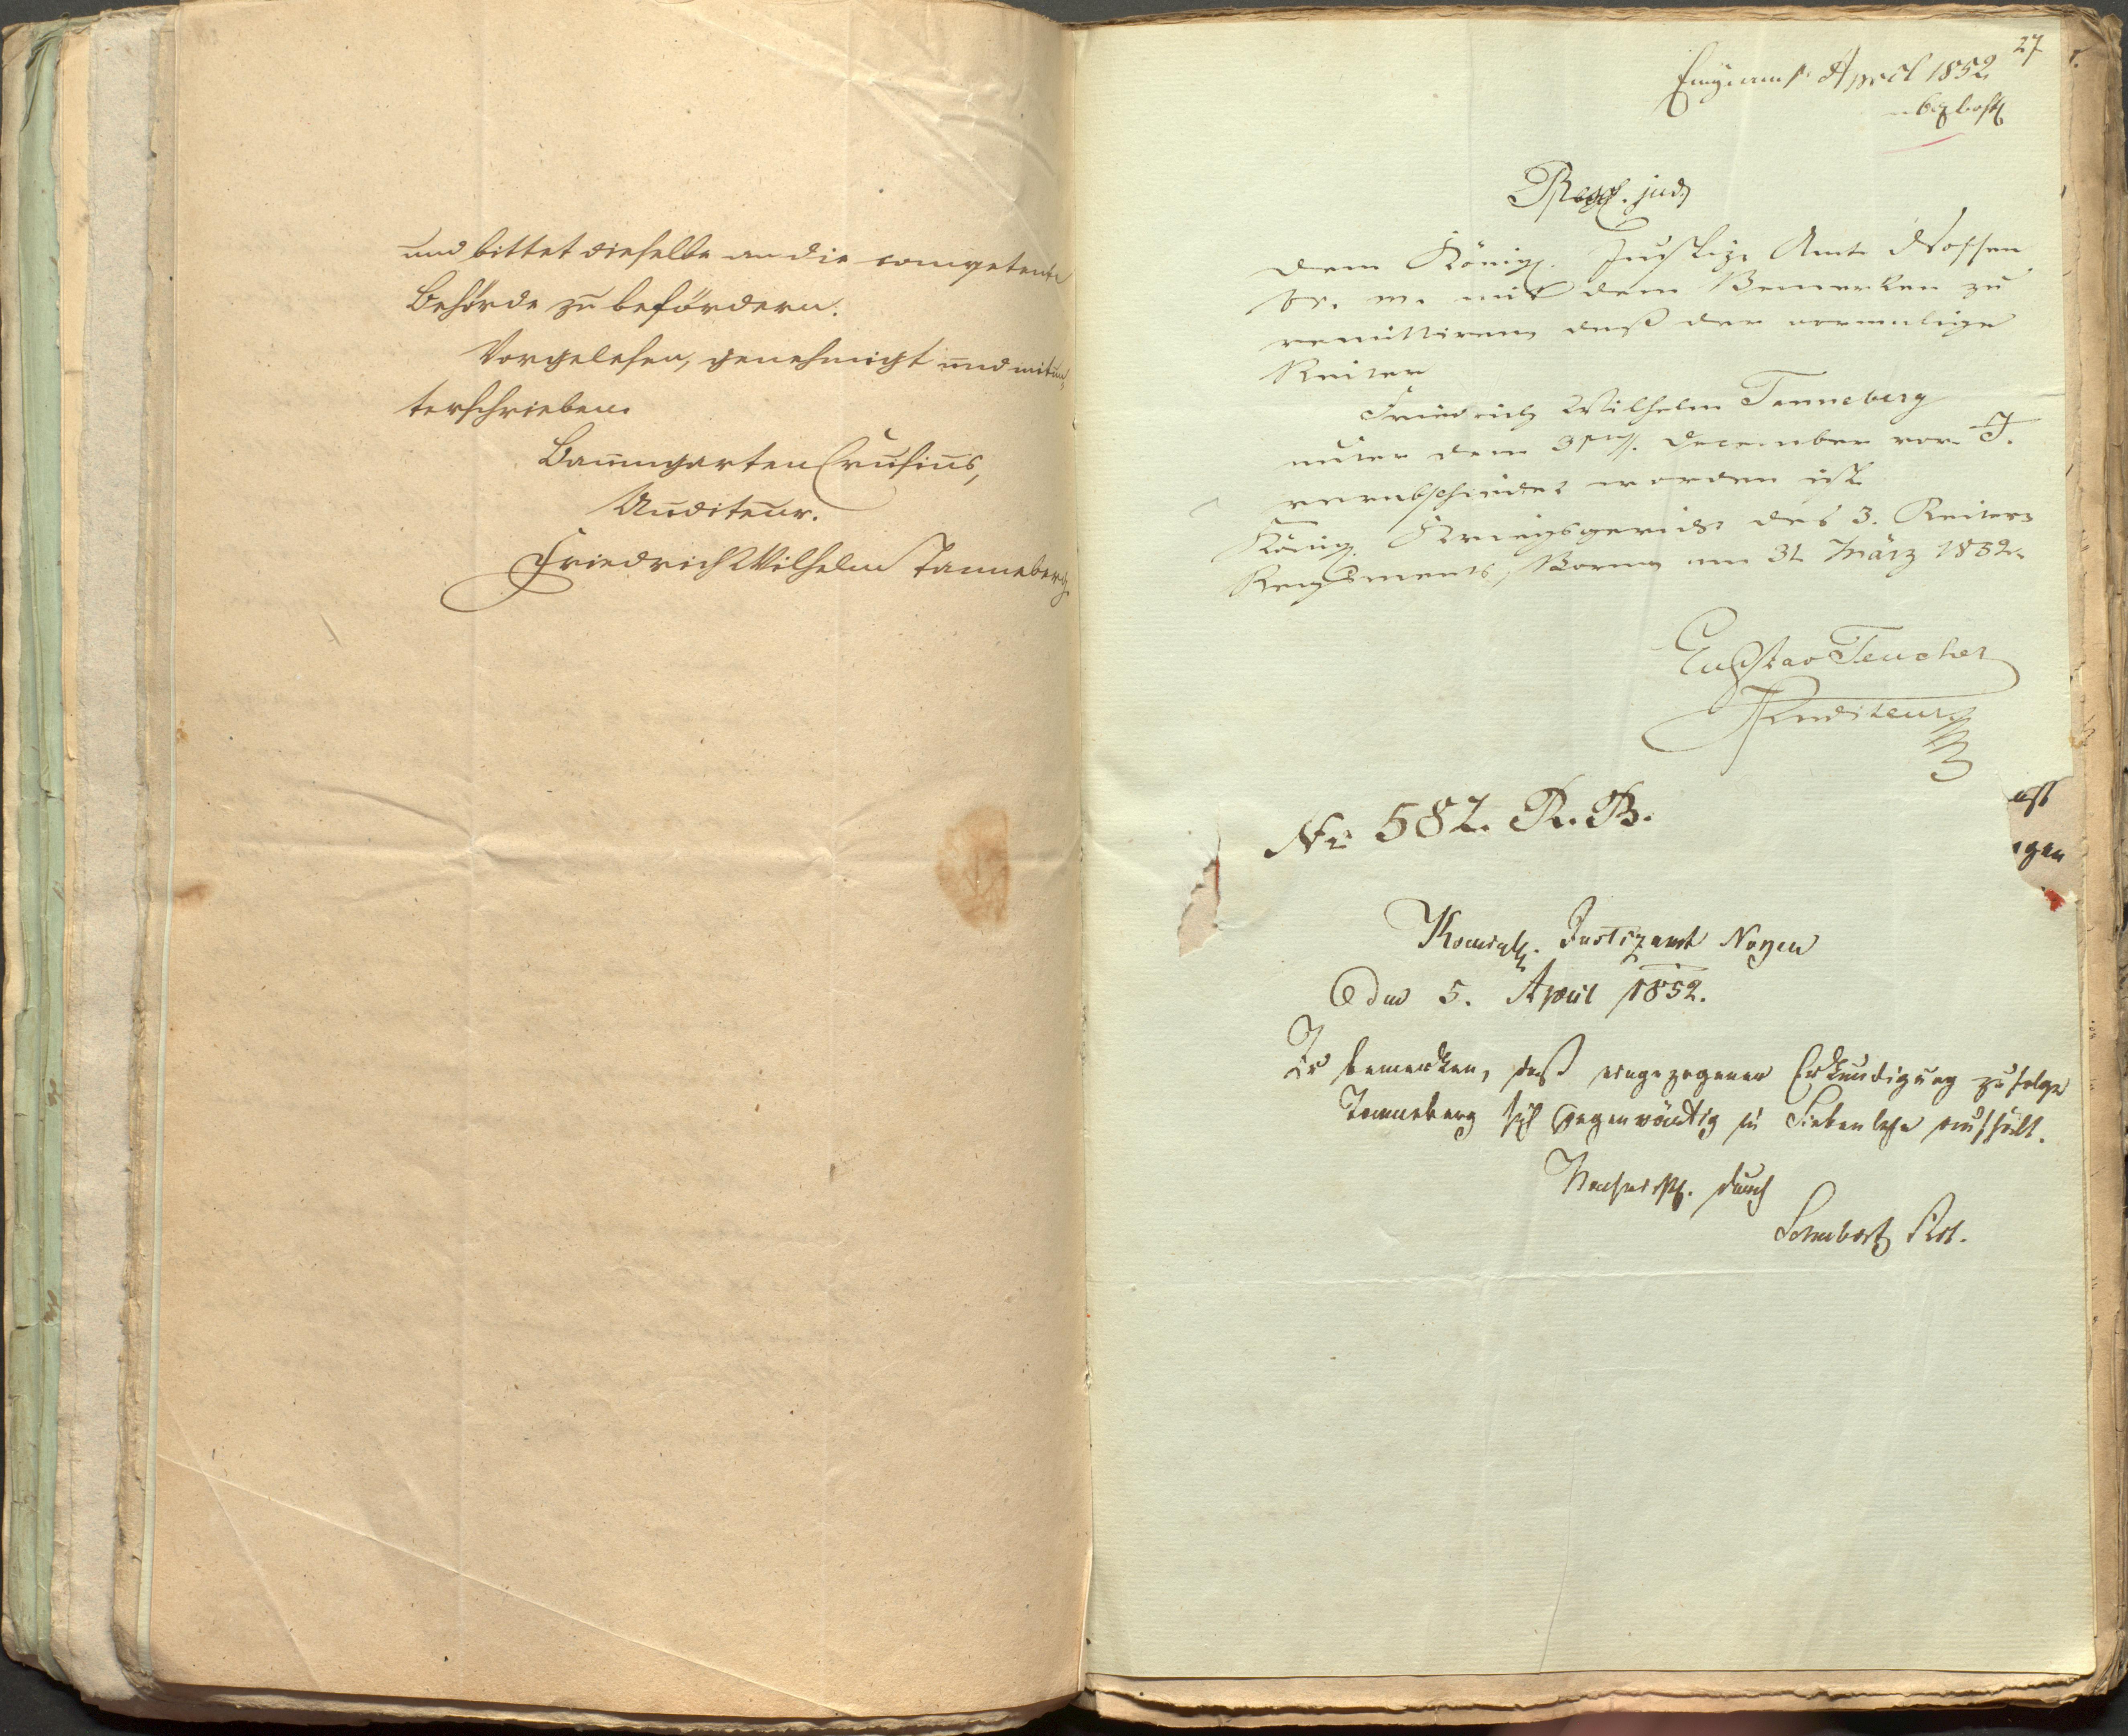 und bittet dieselbe an die competente
Behörde zu befördern.
Vorgelesen, genehmigt und mitun-
terschrieben.
Baumgarten Crusius,
Auditeur.
Friedrich Wilhelm Tanneberg
27
Eing. am April 1852
Resp. jud.
Dem Königl. Justiz Amte Nossen
br. m. mit dem Bemerken zu
remittiren, daß der vormalige
Reiter
Friedrich Wilhelm Tanneberg
unter dem 31. December vor. J.
verabschiedet worden ist.
Königl. Kriegsgericht des 3. Reiter-
Regiments, Borna am 31 März 1852.
Gustav Teucher
Auditeur
No 582. R. B.
Königl. Justizamt Nossen
den 5. April 1852.
Ist bemerken, daß eingezogener Erkundigung zufolge
Tanneberg sich gegenwärtig in Siebenlehn aufhält.
Nachricht. durch
Schubert